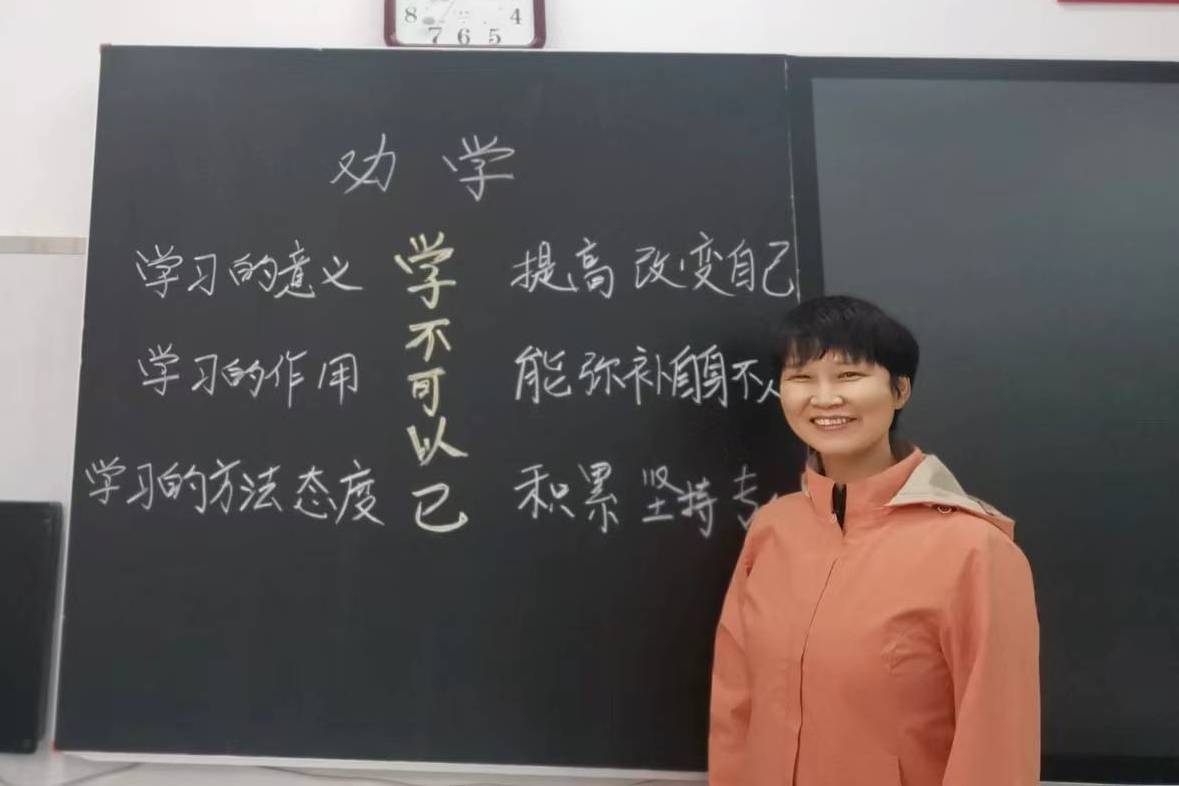 8 7 6 5 4
劝学
学习的意义 学不可以已 提高 改变自己
学习的作用 能弥补自身不
学习的方法态度 积累 坚持